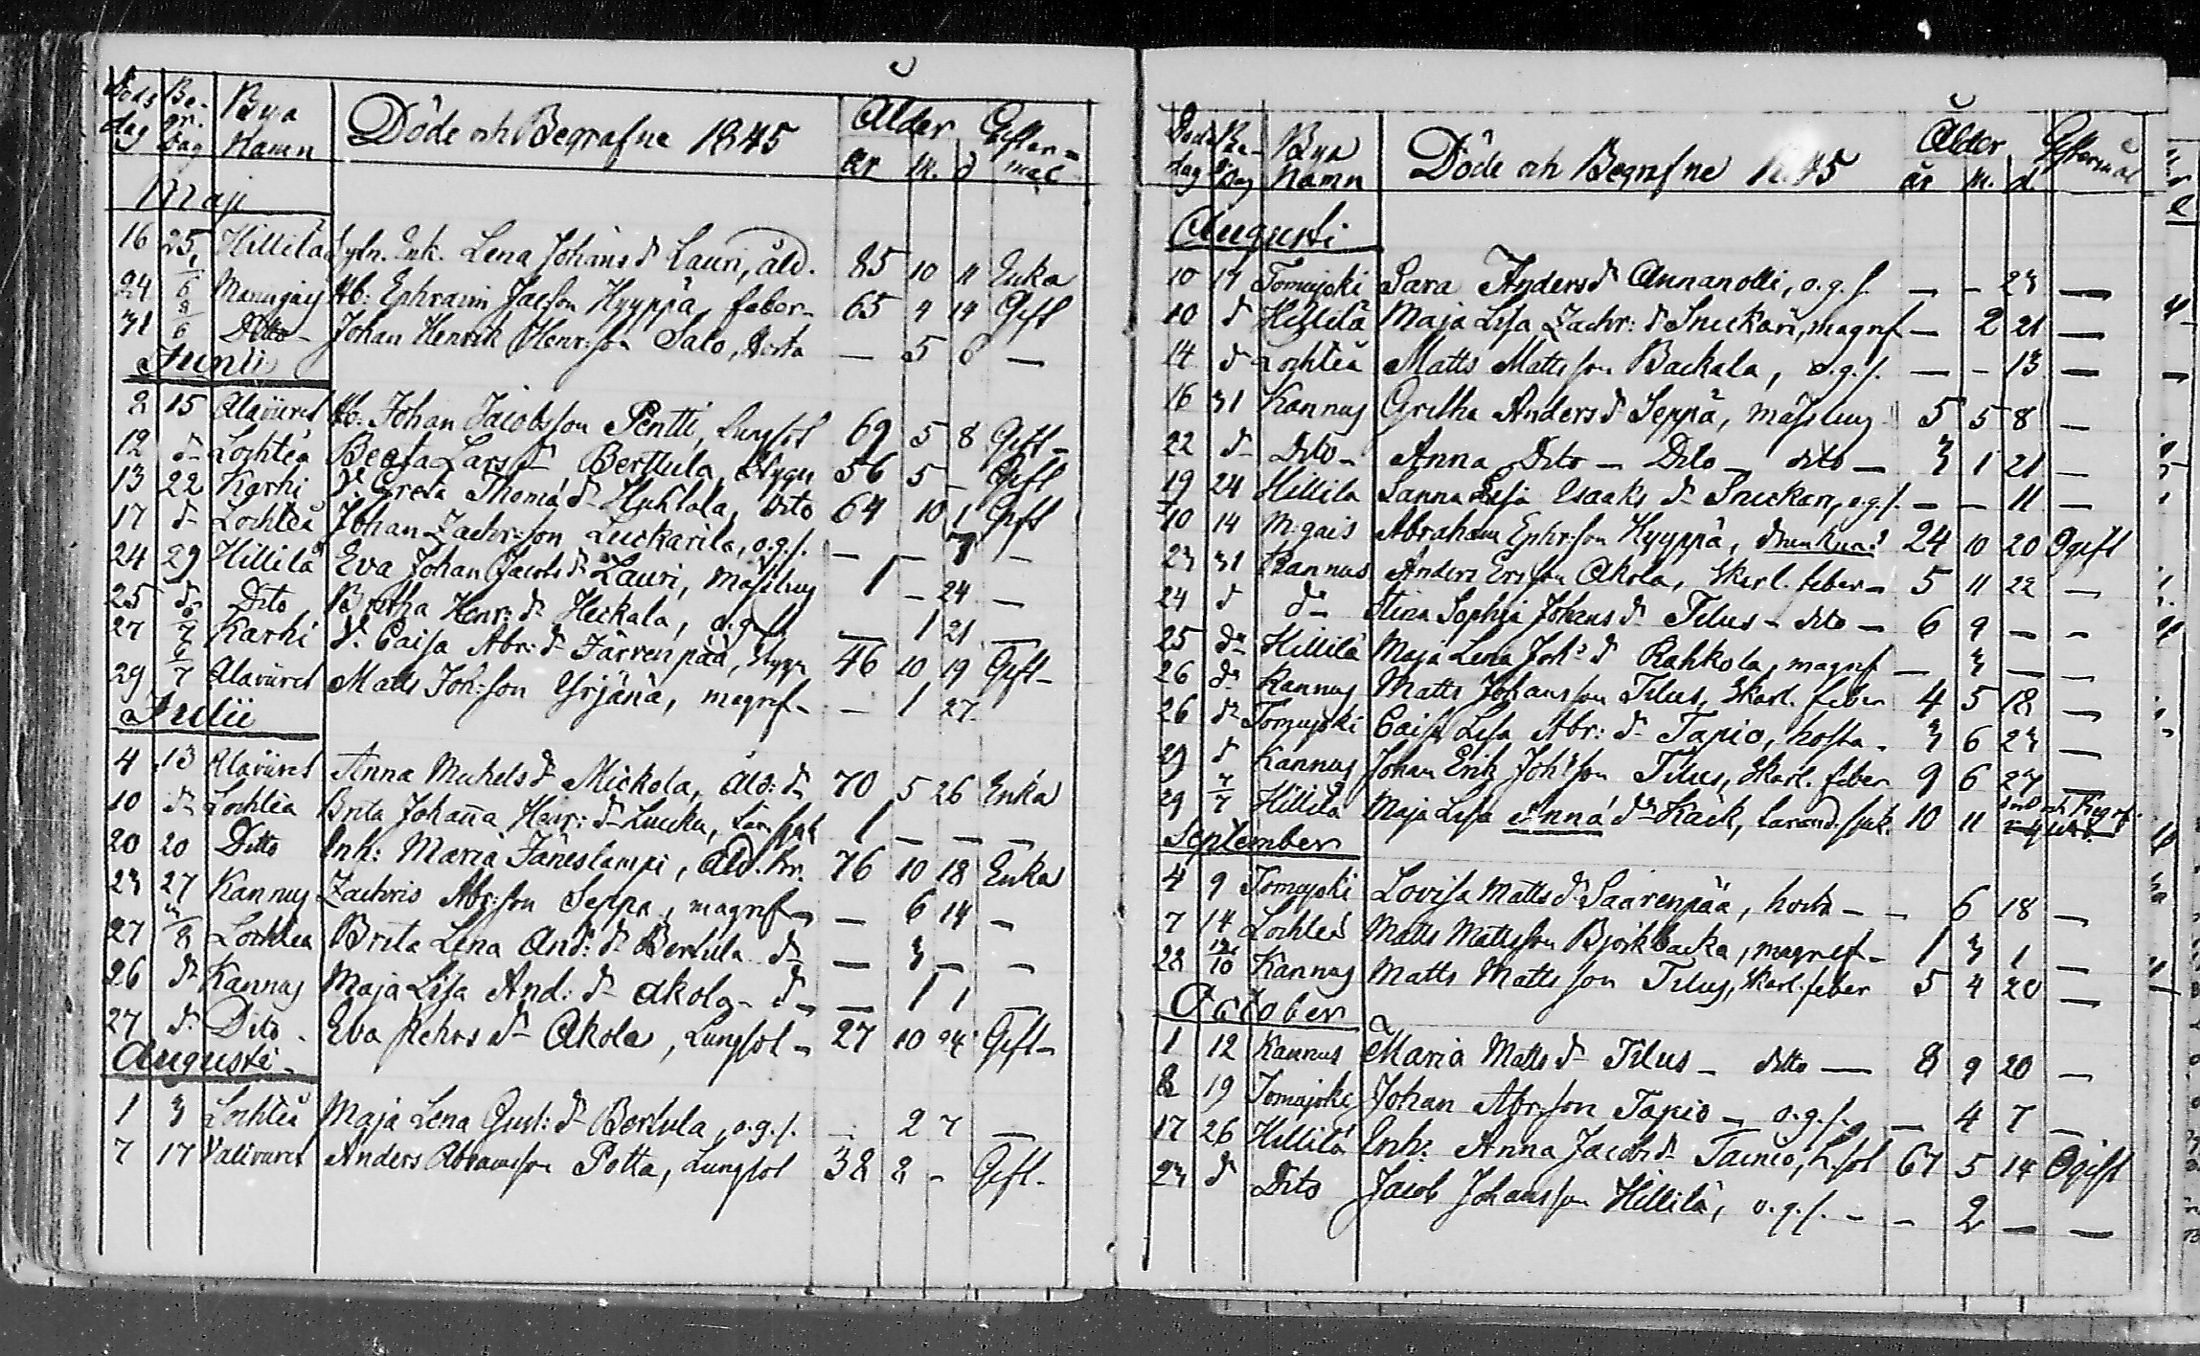 Döds dag Be-gr. dag Bya Namn Döde och Begrafne 1845 Ålder år M. d Gifter=mål
Maji
16 25 Hillilä Enk. Lena Johans dr Lauri, åld. 85 10 11 Enka
24 1/6 Hb: Ephraim Jacson Hyyppä, feber 65 9 14 Gift
31 8/6 Ditto Johan Henrik Henr:son Salo, Hosta — 5 6 —
Junii
2 15 Alaviiret Hb. Johan Jacobsson Pentti, Lungsot 69 5 8 Gift
12 d- Lochteå Beata Lars dr Berttula, Stygn 56 5 - Gift
13 22 Karhi Greta Thomæ dr Huhtala, dito 64 10 1 Gift
17 d- Lochteå Johan Zachr:son Luckarila, o.g.s. — — 7 —
24 29 Hillilä Eva Johan Jacobs dr Lauri, Mässling 1 - 24 —
25 d Dito Britha Henr: dr Heikala, o.g.s. — 1 21 —
27 6/7 Karhi Caisa Abr: dr Järvenpää, Stygn 46 10 19 Gift
29 6/7 Alaviiret Matts Joh:son Yrjänä, magref - — 1 27
Julii
4 13 Alaviiret Anna Michels dr Mickola, Åld: 70 5 26 Enka
10 d- Lochteå Brita Johanna Henr: dr Lucku, 1 — — —
20 20 Ditto Inh: Maria Jäneslampi, Åld. br. 76 10 18 Enka
23 27 Kannus Zachris Abr:son Seppä, magref — 6 14 —
27 3/8 Lochteå Brita Lena And: dr Bertula d- — 3 — —
26 d- Kannus Maja Lisa And: dr Akola - d- — 1 1 —
27 d- Dito Eva Pehrs dr Akola, Lungsot 27 10 24 Gift
Augusti
1 3 Lochteå Maja Lena Gust: dr Bertula, o.g.s. — 2 7 —
7 17 Valiviiret Anders Abramsson Potta, Lungsot 38 8 - Gift.
Döds dag Be-gr dag Bya Namn Döde och Begrafne 1845 Ålder år M. d. Giftermål
Augusti
10 17 Tomujoki Sara Anders dr Annanolli, o.g.s. — — 23 —
10 d Hillilä Maja Lisa Zachr: dr Snickari, magref — 2 21 —
14 d Lochteå Matts Mattsson Backala, o.g.s. — — 13 —
16 31 Kannus Gretha Anders dr Seppä, Mässling 5 5 8 —
22 d- Dito Anna Dito — Dito — dito — 3 1 21 —
19 24 Hillilä Sanna Lisa Isaaks dr Snickari, o.g.s. — — 11 —
10 14 M.gais Abraham Ephr:son Hyyppä, drunknad 24 10 20 Ogift
23 31 Kannus Anders Ersson Akola, Skarl. feber 5 11 22 —
24 d d- Stina Sophia Johans dr Tilus - dito — 6 9 — —
25 d- Hillilä Maja Lena Joh: dr Rahkola, magref — 3 — —
26 d- Kannus Matts Johansson Tilus, Skarl. feber 4 5 18 —
26 d- Tomujoki Caisa Lisa Abr: dr Tapio, hosta - 3 6 23 —
29 d Kannus Johan Erik Joh:son Tilus, Skarl. feber 9 6 27 —
29 7/7 Hillilä Maja Lisa Anna dr Käck, 10 11
September
4 9 Tomujoki Lovisa Matts dr Saarenpää, hosta — — 6 18 —
7 14 Lochteå Matts Mattsson Björkbacka, magref — 1 3 1 —
28 12/10 Kannus Matts Mattsson Tilus, Skarl. feber 5 4 20 —
October
1 12 Kannus Maria Matts dr Tilus — ditto — 8 9 20 —
8 19 Tomujoki Johan Abr:son Tapio — o.g.s. — 4 7 —
17 26 Hillilä Inh: Anna Jacobs dr Tainio, L.sot 67 5 14 Ogift
23 d Dito Jacob Johansson Hillilä, o.g.s. — — 2 — —